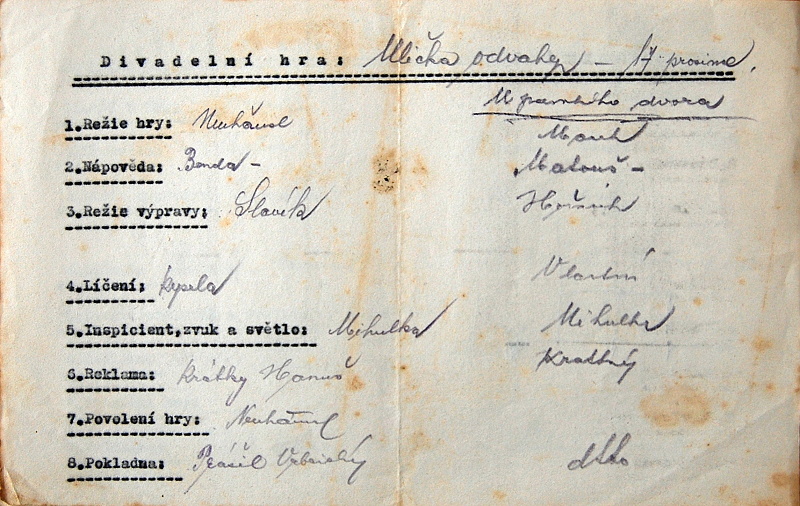 Divadelní hra: Ulička odvahy – 17 prosince,
U panského dvora
1.Režie hry: Neuhäusl
2.Nápověda: Benda – Matouš –
3.Režie výpravy: Slavík
4.Líčení: Kypela Vlastní
5.Inspicient,zvuk a světlo: Mihulka Mihulka
6.Reklama: Krátký Hanuš Krátký
7.Povolení hry: Neuhäusl
8.Pokladna: Prášil dtto